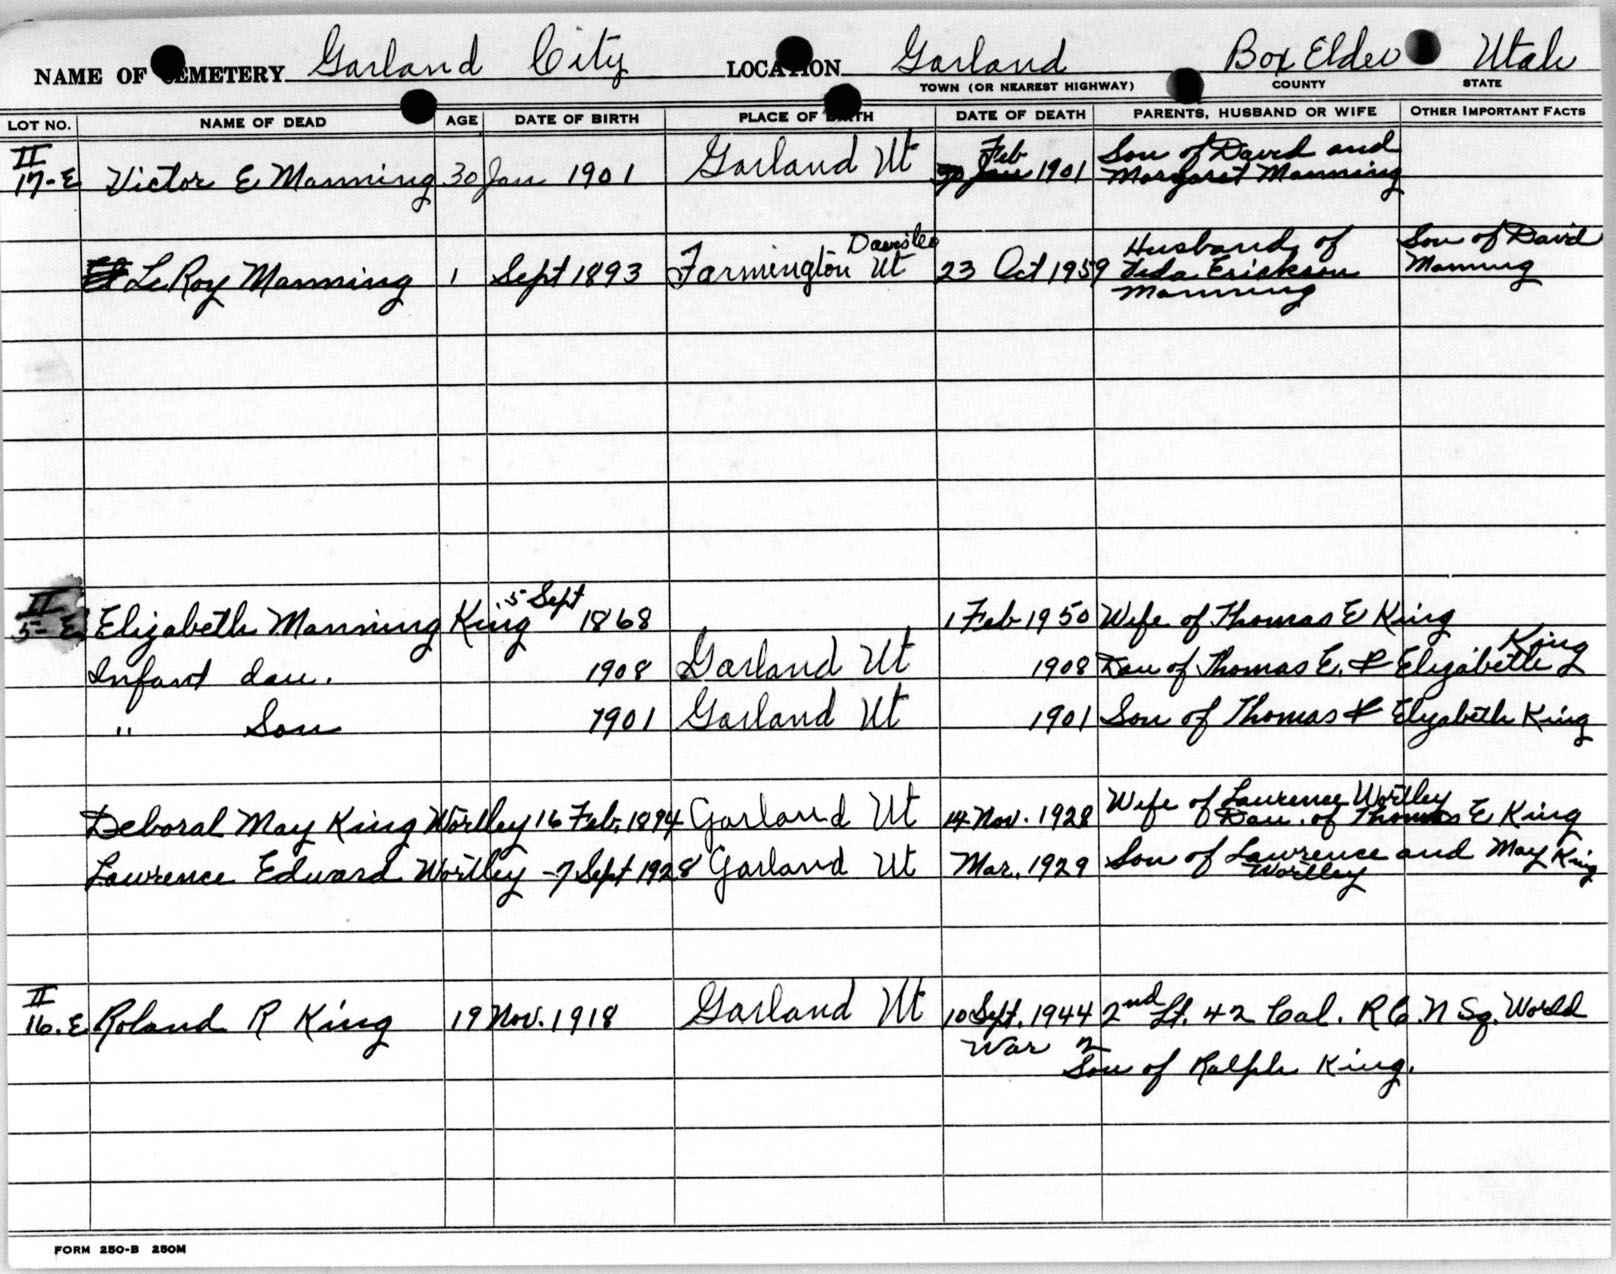 NAME OF CEMETERY Garland City LOCATION Garland Box Elder Utah
TOWN (OR NEAREST HIGHWAY) COUNTY STATE
LOT NO. NAME OF DEAD AGE DATE OF BIRTH PLACE OF BIRTH DATE OF DEATH PARENTS, HUSBAND OR WIFE OTHER IMPORTANT FACTS
II Feb Son of David and
17-E Victor E Manning 30 Jan 1901 Garland Ut 1901 Margaret Manning
Davis Co Husband of Son of David
LeRoy Manning 1 Sept 1893 Farmington Ut 23 Oct 1959 Erickson Manning
Manning
II 5 Sept
5-E Elizabeth Manning King 1868 1 Feb 1950 Wife of Thomas E King
Infant dau. 1908 Garland Ut 1908 Dau of Thomas E. & Elizabeth King
" Son 1901 Garland Ut 1901 Son of Thomas & Elyabeth King
Wife of Laurence Wortley
Deboral May King Wortley 16 Feb. 1894 Garland Ut 14 Nov. 1928 Dau. of Thomas E King
Lawrence Edward Wortley - 7 Sept 1928 Garland Ut Mar. 1929 Son of Lawrence and May King
Wortley
II
16.E Roland R King 19 Nov. 1918 Garland Ut 10 Sept. 1944 2nd Lt. 42 Cal. N Sq. World
War 2
Son of Ralph King.
FORM 250-B 250M